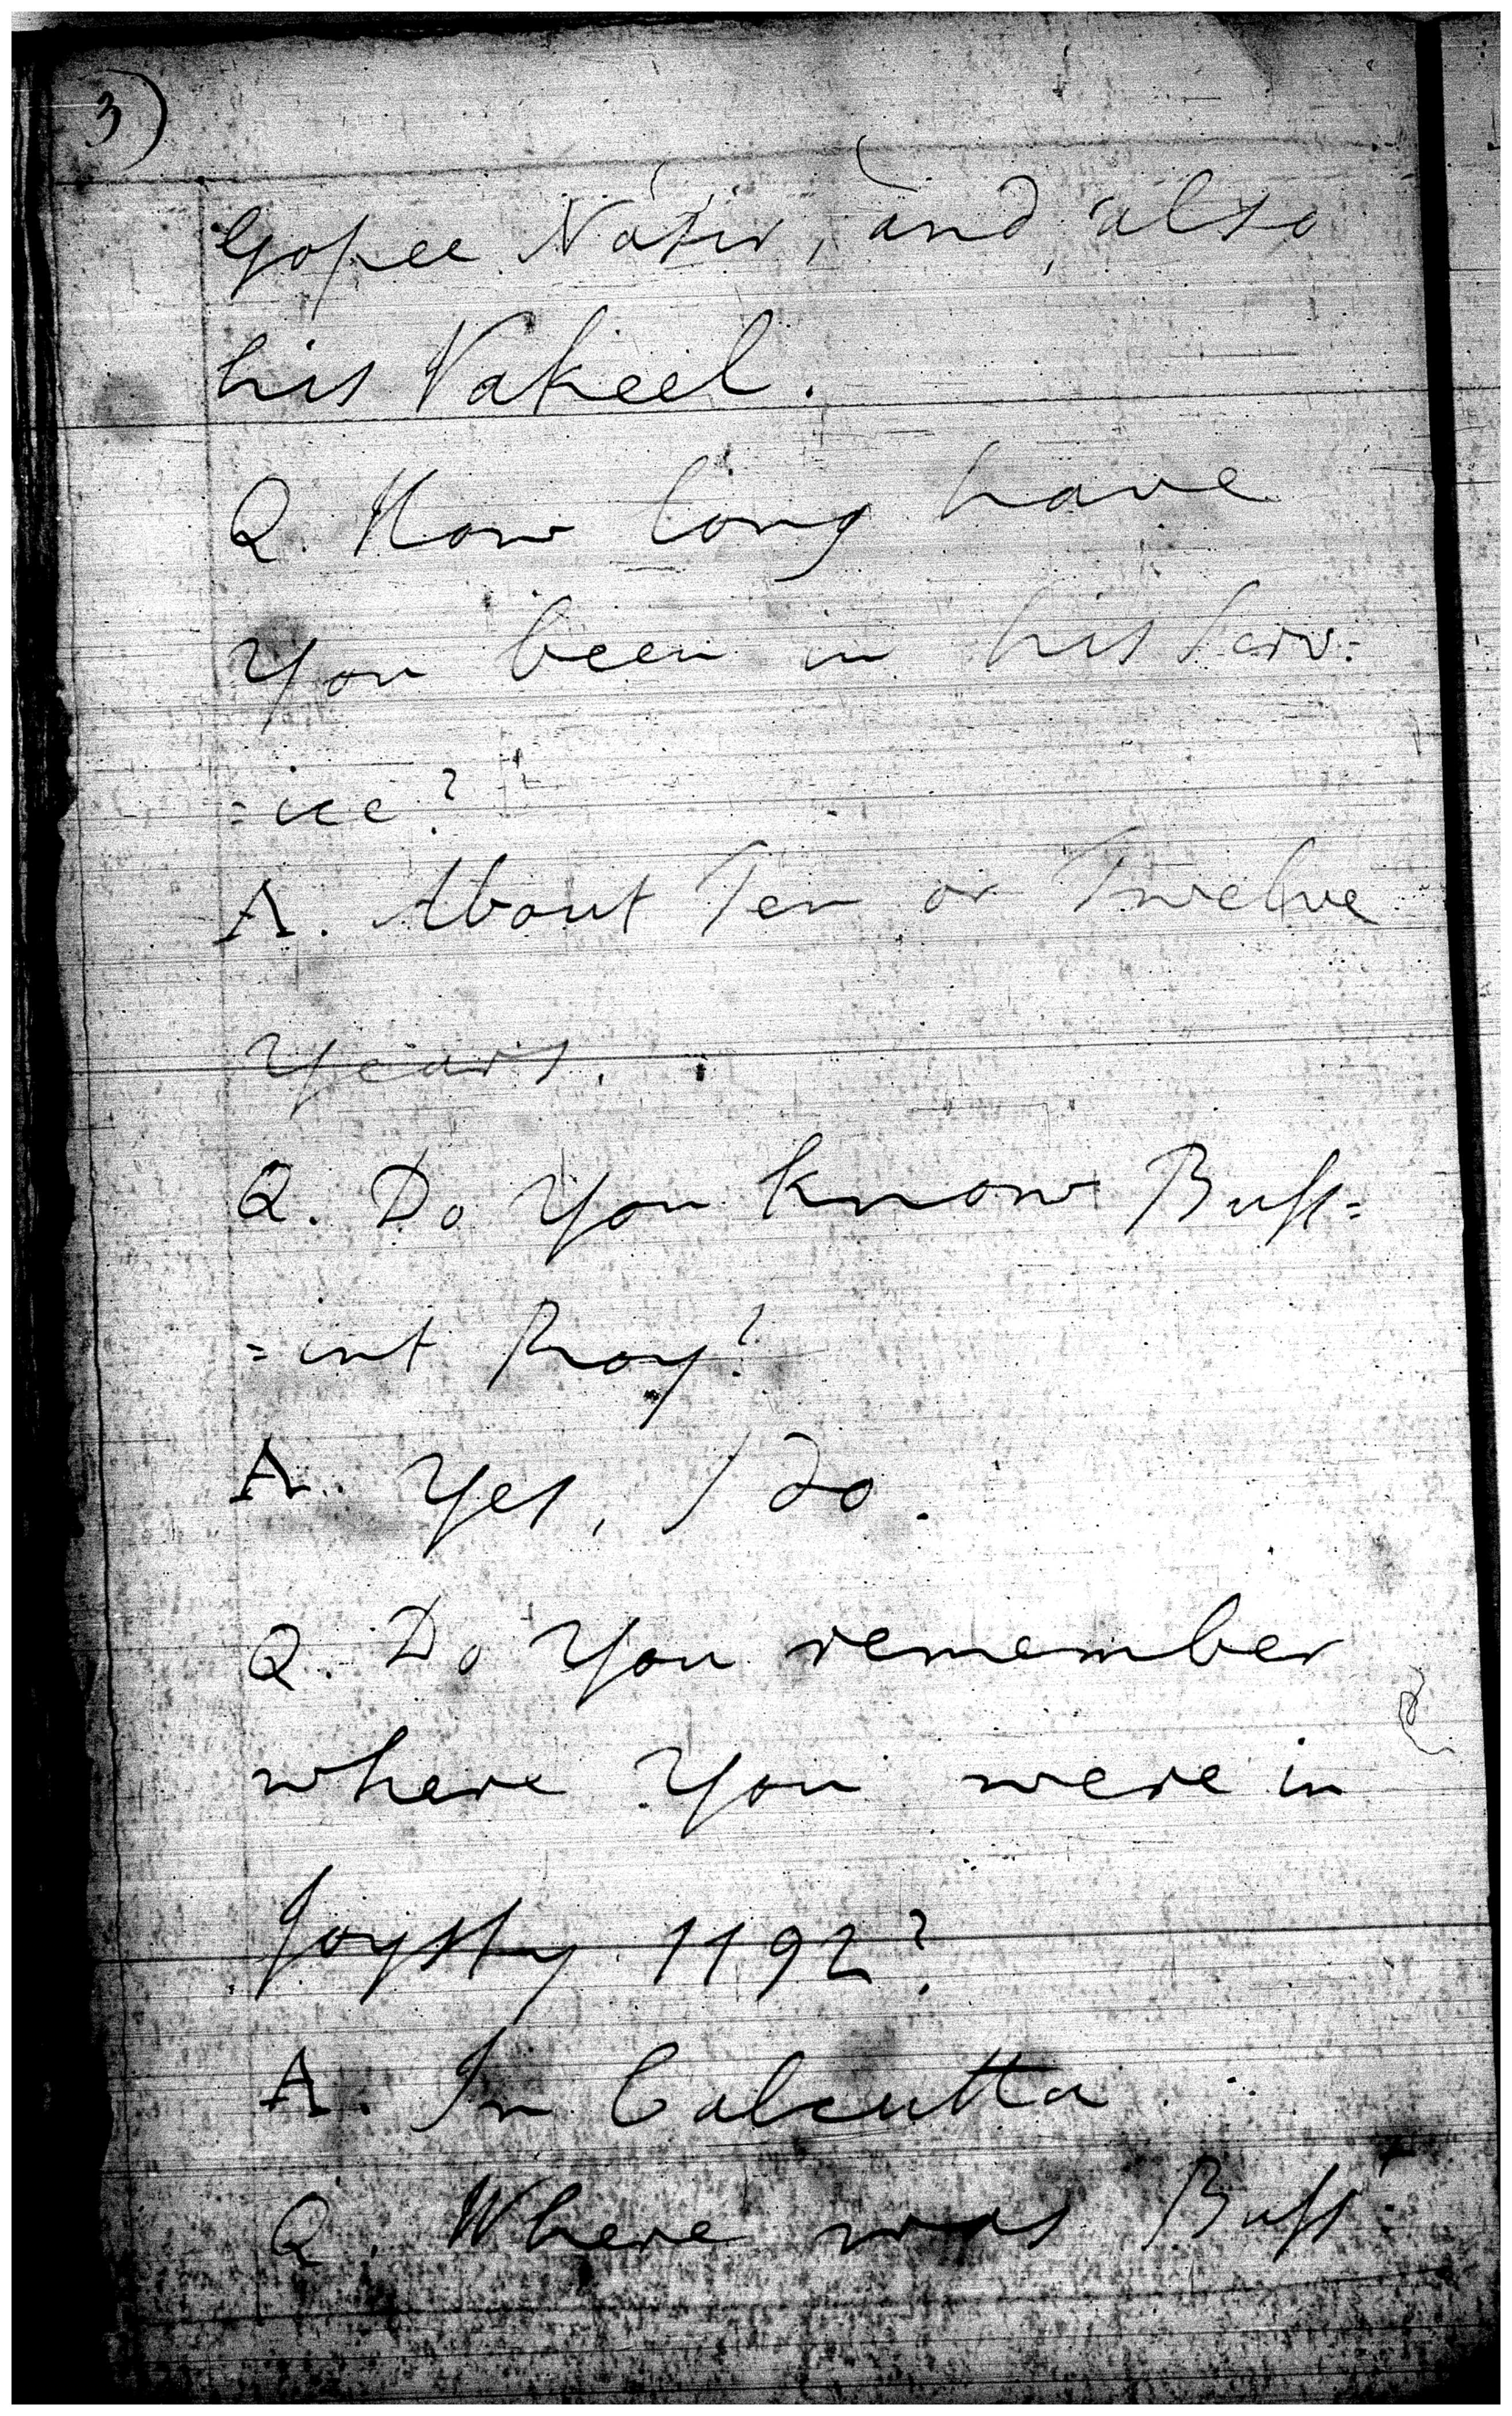 3)
Gopee Nazir, and also
his Vakeel.
Q. How long have
You been in his Serv=
=ice?
A. About Ten or Twelve
Years.
Q. Do You know Buss=
=int Roy?
A. Yes, I do.
Q. Do You remember
where You were in
Joysty 1192?
A. In Calcutta.
Q. Where was Buss=